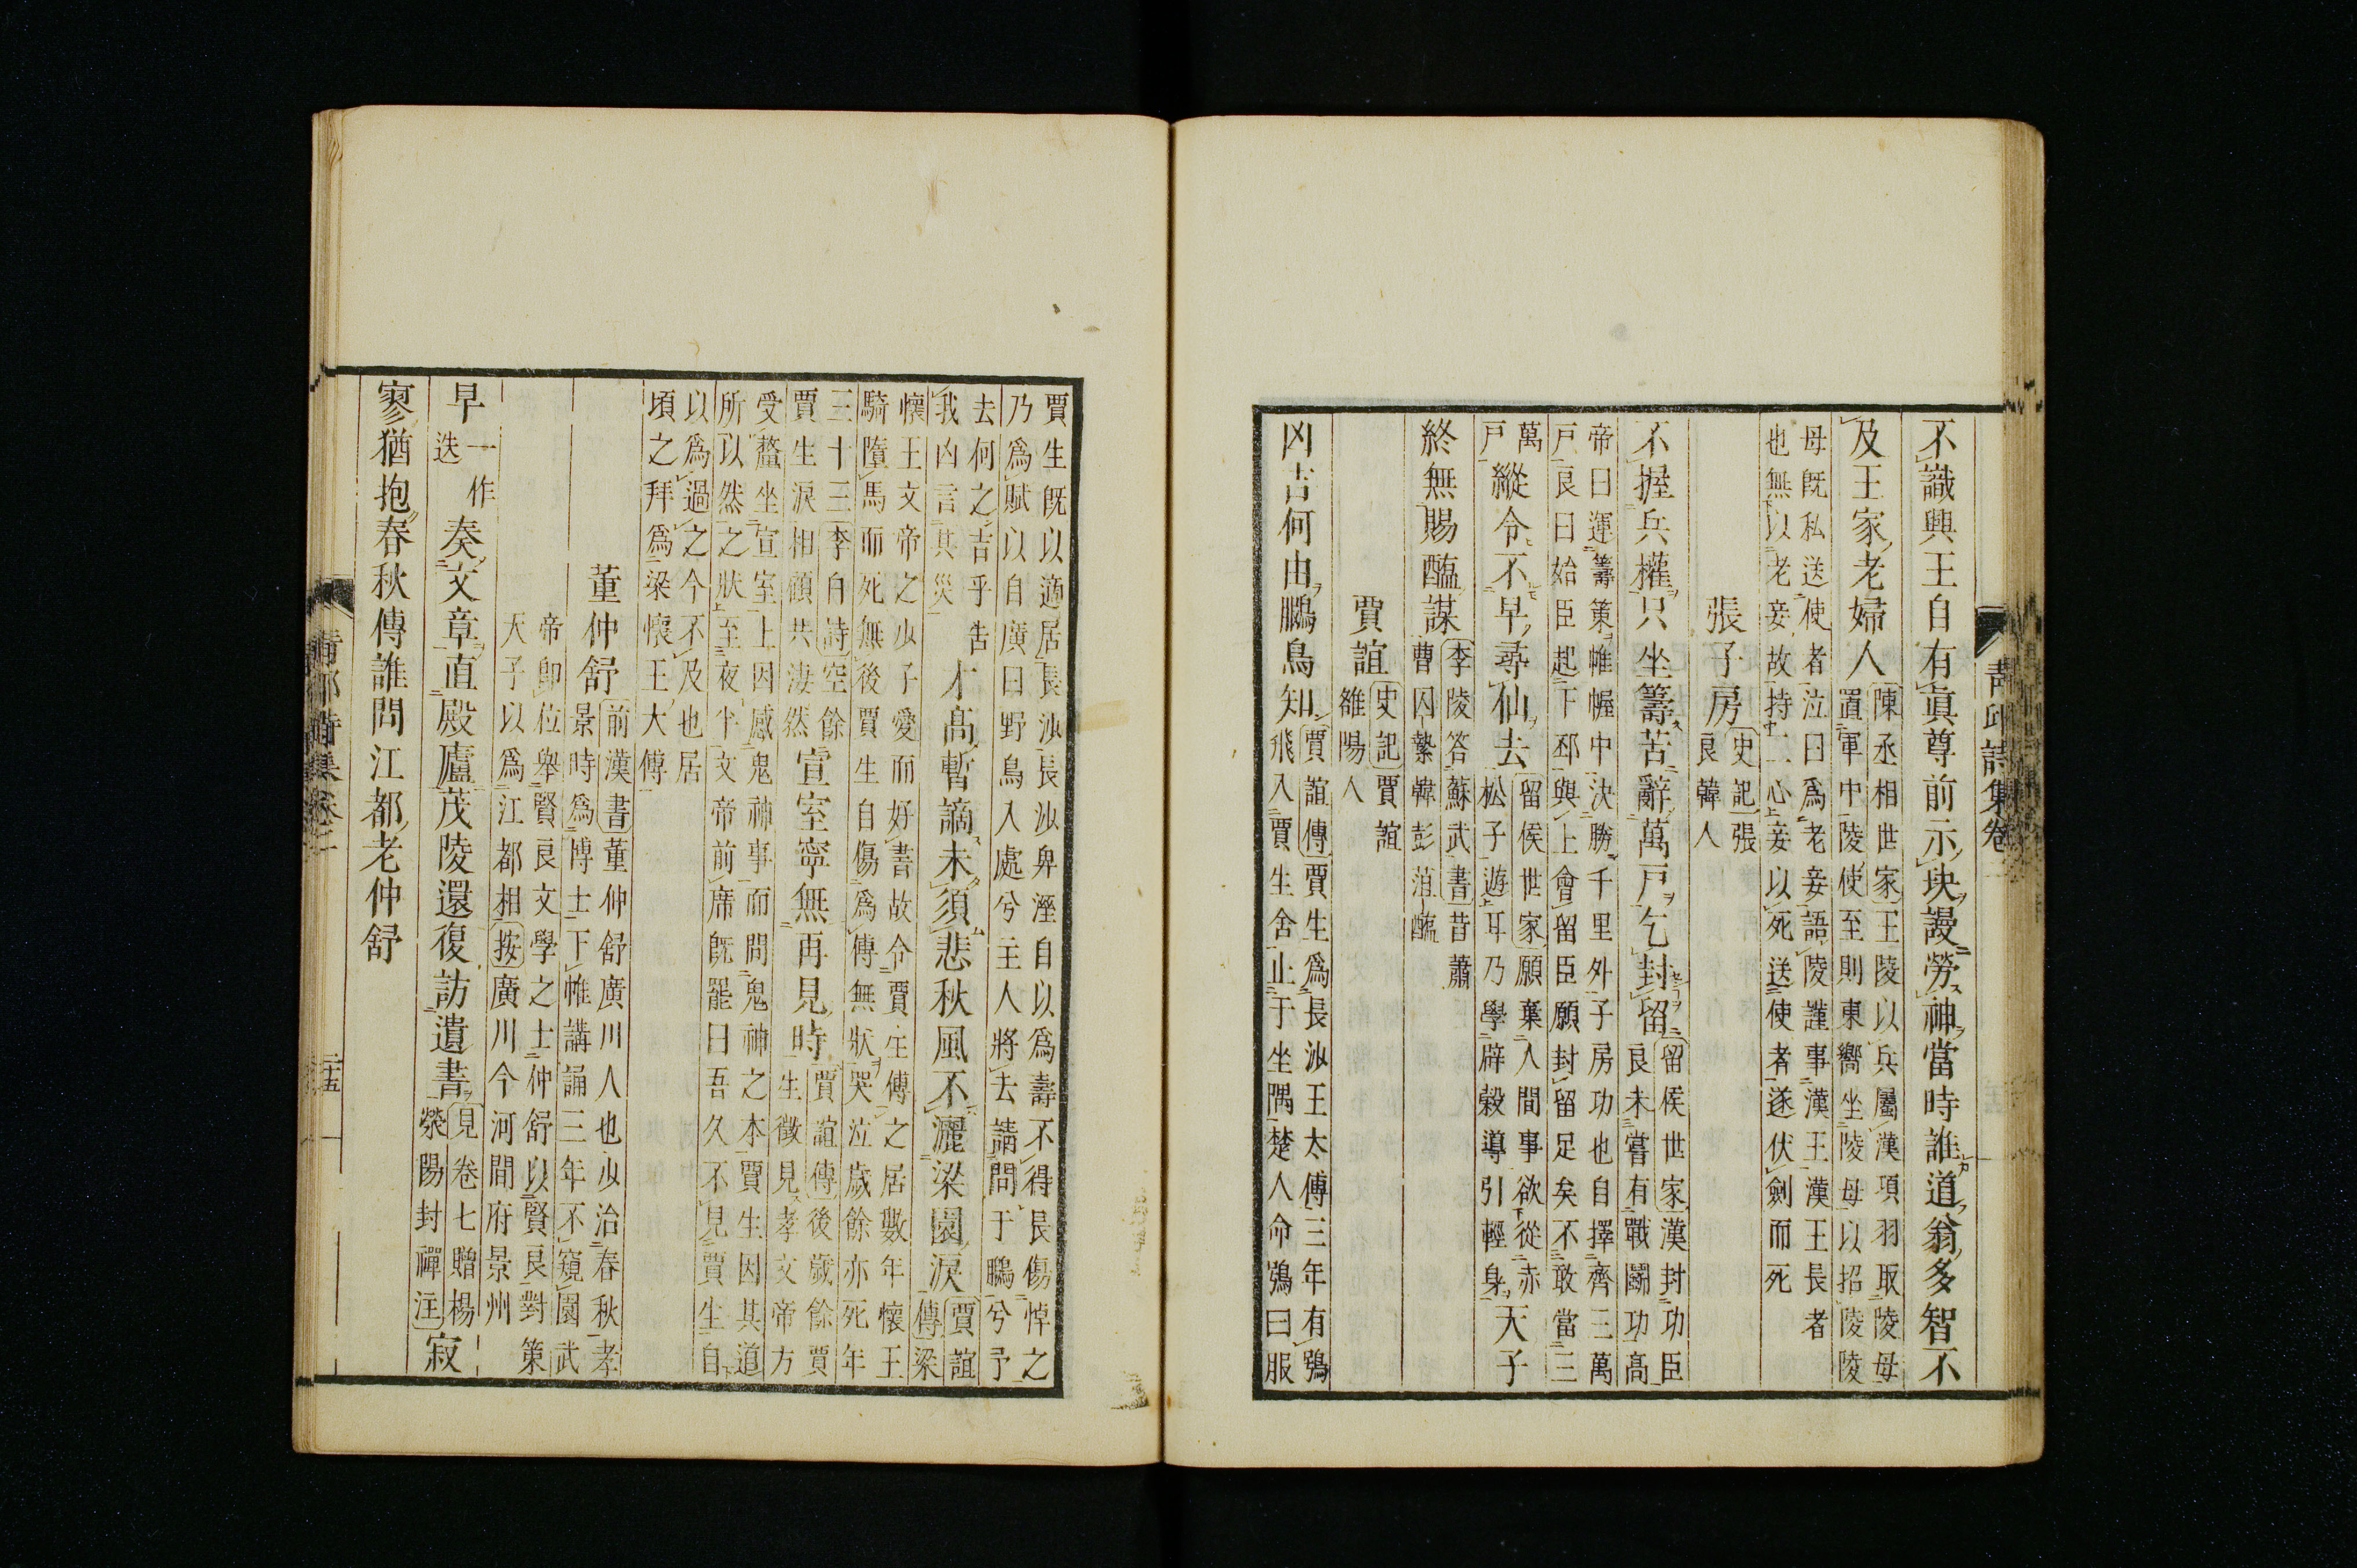 青邱詩集卷
不識興王自有眞尊前示玦謾勞神當時誰道翁多智不
及王家老婦人
陳丞相世家王陵以兵屬漢項羽取陵母
置軍中陵使至則東嚮坐陵母以招陵陵
母旣私送使者泣曰爲老妾語陵謹事漢王漢王長者
也無以老妾故持二心妾以死送使者遂伏劍而死
張子房
史記張
良韓人
不握兵權只坐籌苦辭萬戶乞封留
留侯世家漢封功臣
良未嘗有戰鬭功高
帝曰運籌策帷幄中決勝千里外子房功也自擇齊三萬
戶良曰始臣起下邳與上會留臣願封留足矣不敢當三
萬
戶
縱令不早尋仙去
留侯世家願棄人間事欲從赤
松子遊耳乃學辟穀導引輕身
天子
終無賜醢謀
李陵答蘇武書昔蕭
曹囚縶韓彭葅醢
賈誼
史記賈誼
雒陽人
凶吉何由鵩鳥知
賈誼傳賈生爲長沙王太傅三年有鴞
飛入賈生舍止于坐隅楚人命鴞曰服
賈生旣以適居長沙長沙卑溼自以爲壽不得長傷悼之
乃爲賦以自廣曰野鳥入處兮主人將去請問于鵩兮予
去何之吉乎告
我凶言其災
才高暫謫未須悲秋風不灑梁園淚
賈誼
傳梁
懷王文帝之少子愛而好書故令賈生傅之居數年懷王
騎墮馬而死無後賈生自傷爲傅無狀哭泣歲餘亦死年
三十三李白詩空餘
賈生淚相顧共淒然
宣室寧無再見時
賈誼傳後歲餘賈
生徵見孝文帝方
受釐坐宣室上因感鬼神事而問鬼神之本賈生因其道
所以然之狀至夜半文帝前席旣罷曰吾久不見賈生自
以爲過之今不及也居
頃之拜爲梁懷王大傅
董仲舒
前漢書董仲舒廣川人也少治春秋孝
景時爲博士下帷講誦三年不窺園武
帝卽位舉賢良文學之士仲舒以賢良對策
天子以爲江都相按廣川今河間府景州
早
一作
迭
奏文章直殿廬茂陵還復訪遺書
見卷七贈楊
滎陽封禪注
寂
寥猶抱春秋傳誰問江都老仲舒
青邱詩集卷二
二十五